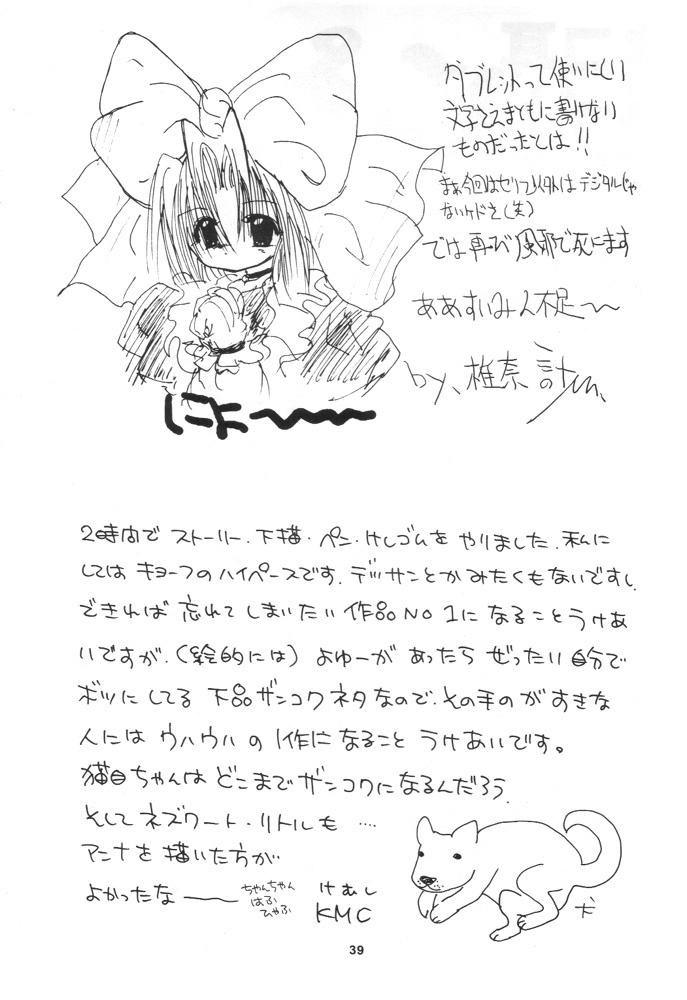 タブレットって使いにくい
文字さえまともに書けない
ものだったとは!!
まぁ今回はセリフ以外はデジタルじゃ
ないケドさ(笑)
では再び風邪で死にます
ああすいみん不足〜〜
by、椎奈
にょ〜〜〜〜
2時間でストーリー、下描・ペン・けしゴムをやりました。私に
してはキョーフのハイペースです。デッサンとかみたくもないですし、
できれば忘れてしまいたい作品NO1になることうけあ
いですが、(絵的には)よゆーがあったらぜったい自分で
ボツにしてる下品ザンコクネタなので、その手のがすきな
人にはウハウハの1作になることうけあいです。
猫目ちゃんはどこまでザンコクになるんだろう。
そしてネズワート・リトルも….
アンナを描いた方が
よかったな〜〜
ちゃんちゃん
はふ
ひゃふ
けむし
KMC
犬
39